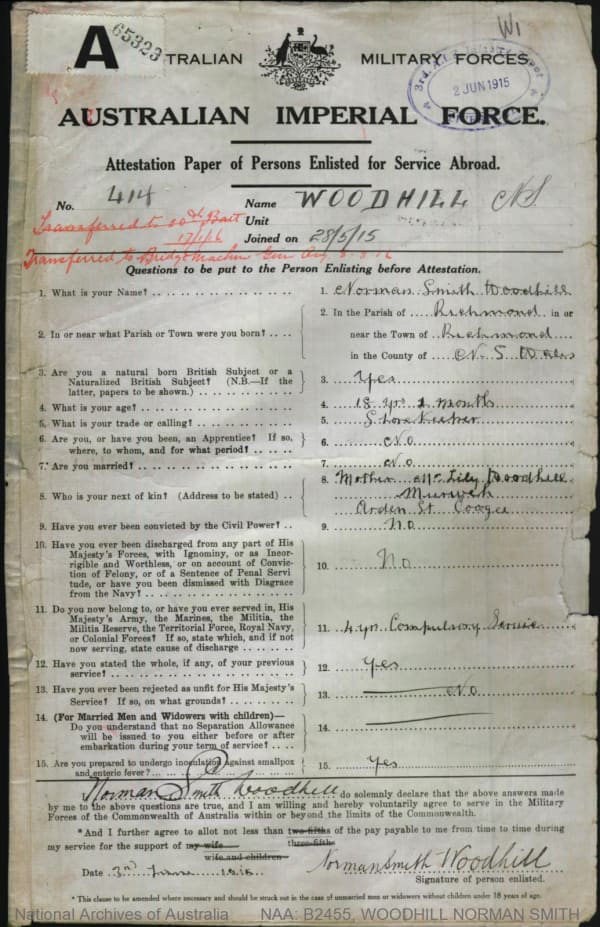 A 65323
W1
TRALIAN MILITARY FORCES.
3rd
2 JUN 1915
AUSTRALIAN IMPERIAL FORCE.
Attestation Paper of Persons Enlisted for Service Abroad.
No. 414 Name WOODHILL N.S.
Transferred to Batt Unit
17/1/16 Joined on 28/5/15
Transferred to Machine Gun
Questions to be put to the Person Enlisting before Attestation.
1. What is your Name? 1. Norman Smith Woodhill
2. In or near what Parish or Town were you born? 2. In the Parish of Richmond in or
near the Town of Richmond
in the County of N. S. Wales
3. Are you a natural born British Subject or a
Naturalized British Subject? (N.B.—If the 3. Yes
latter, papers to be shown.)
4. What is your age? 4. 18 yrs months
5. What is your trade or calling? 5. Storekeeper
6. Are you, or have you been, an Apprentice? If so, 6. No
where, to whom, and for what period?
7. Are you married? 7. No
8. Who is your next of kin? (Address to be stated) 8. Mother Lily Woodhill
Arden St Coogee
9. Have you ever been convicted by the Civil Power? 9. No
10. Have you ever been discharged from any part of His
Majesty's Forces, with Ignominy, or as Incor-
rigible and Worthless, or on account of Convic-
tion of Felony, or of a Sentence of Penal Servi 10. No
tude, or have you been dismissed with Disgrace
from the Navy?
11. Do you now belong to, or have you ever served in, His
Majesty's Army, the Marines, the Militia, the
Militia Reserve, the Territorial Force, Royal Navy, 11. 4 yrs Compulsory Service
or Colonial Forces? If so, state which, and if not
now serving, state cause of discharge
12. Have you stated the whole, if any, of your previous 12. Yes
service?
13. Have you ever been rejected as unfit for His Majesty's 13. No
Service? If so, on what grounds?
14. (For Married Men and Widowers with children)—
Do you understand that no Separation Allowance 14.
will be issued to you either before or after
embarkation during your term of service?
15. Are you prepared to undergo inoculation against smallpox
and enteric fever? 15. Yes
I, Norman Smith Woodhill do solemnly declare that the above answers made
by me to the above questions are true, and I am willing and hereby voluntarily agree to serve in the Military
Forces of the Commonwealth of Australia within or beyond the limits of the Commonwealth.
*And I further agree to allot not less than two-fifths of the pay payable to me from time to time during
three-fifths
my service for the support of my wife
wife and children
Norman Smith Woodhill
Date 3rd June 1915 Signature of person enlisted.
* This clause to be amended where necessary and should be struck out in the case of unmarried men or widowers without children under 18 years of age.
National Archives of Australia NAA: B2455, WOODHILL NORMAN SMITH